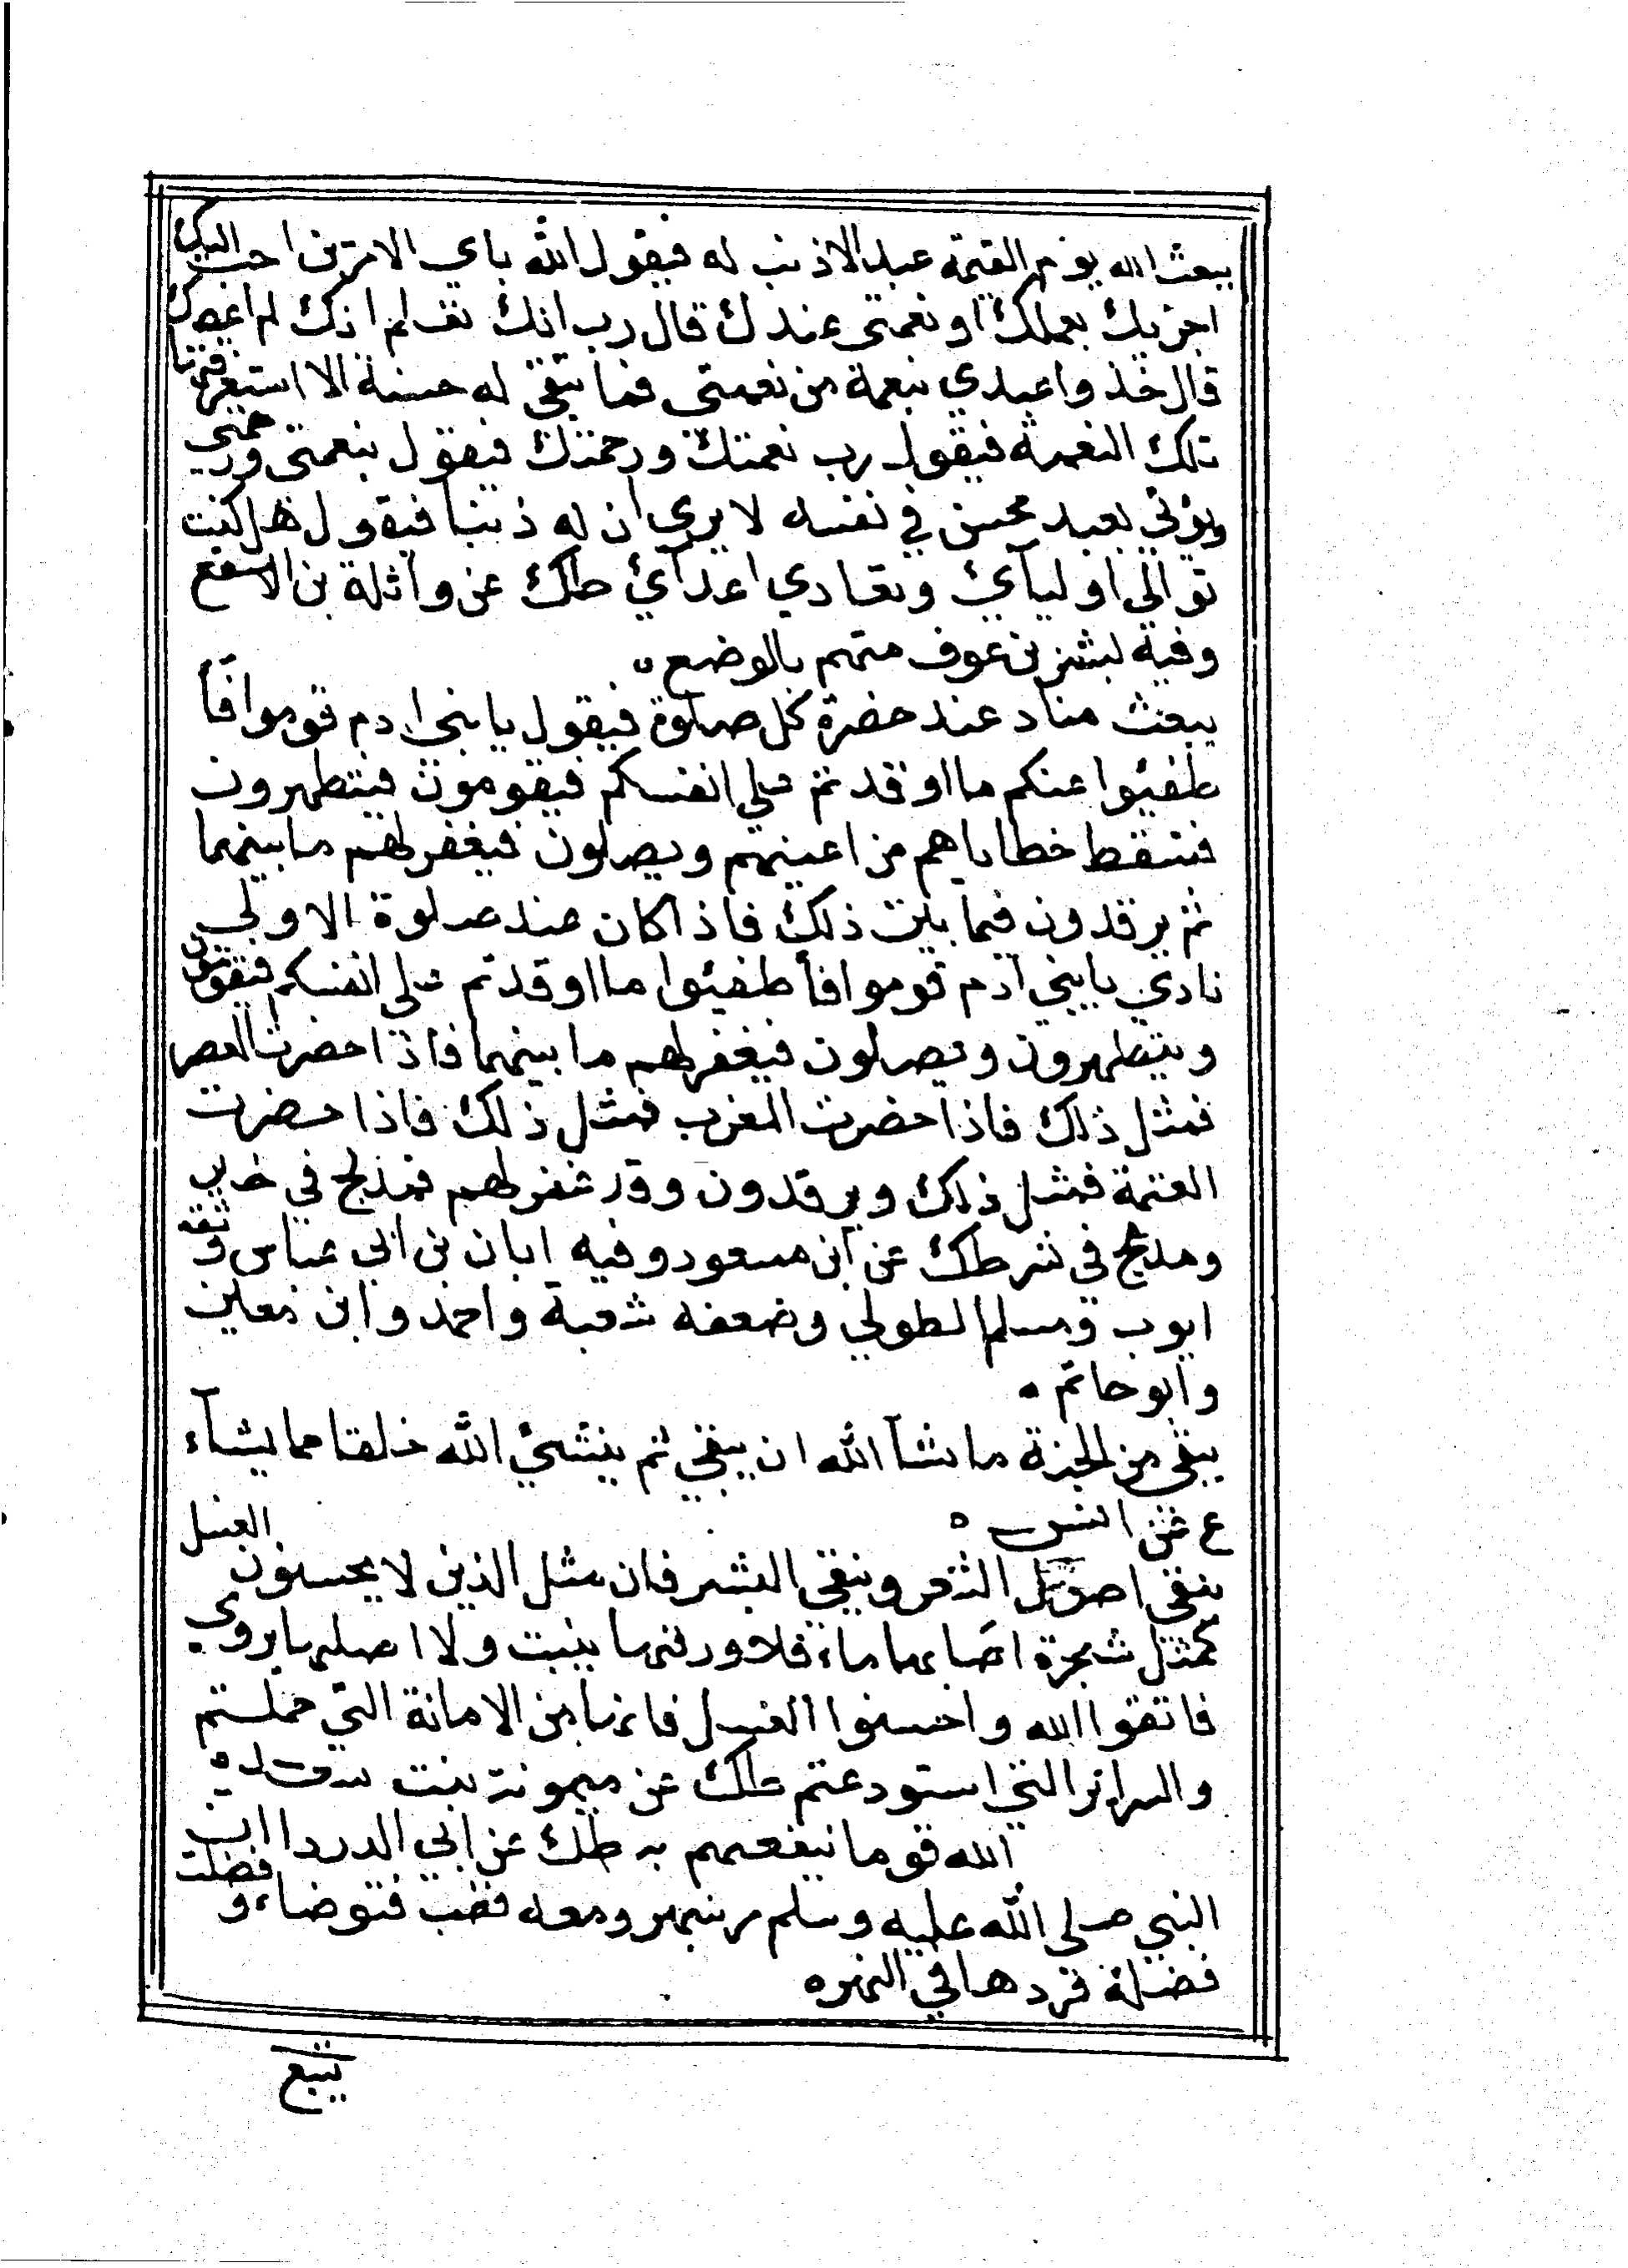 يبعث الله يوم القيمة عبدا لا ذنب له فيقول الله باي الامرين احب اليك
اجزيك بعملك او نعمتي عندك قال رب انك تعلم انك لم اعصك
قال خذوا عبدي بنعمة من نعمتي فما تبقي له حسنة الا استغرقتها
تلك النعمة فيقول رب نعمتك ورحمتك فيقول بنعمتي ورحمتي
ويؤتي بعبد محسن في نفسه لا يري ان له ذنبا فيقول هل كنت
توالي اوليآئ وتعادي اعدآئ طك عن واثلة بن الاسقع
وفيه لبشر بن عوف متهم بالوضع ه
يبعث مناد عند حضرة كل صلوة فيقول يا بني ادم قوموا فأ
طفيوا عنكم ما اوقدتم علي انفسكم فيقومون فيتطهرون
فتسقط خطاياهم من اعينهم ويصلون فيغفر لهم ما بينهما
ثم يرقدون فيما بين ذلك فاذا كان عند صلوة الاولي
نادي يا بني آدم قوموا فأطفيوا ما اوقدتم علي انفسكم فيقومون
ويتطهرون ويصلون فيغفر لهم ما بينهما فاذا حضرت العصر
فمثل ذلك فاذا حضرت المغرب فمثل ذلك فاذا حضرت
العتمة فمثل ذلك ويرقدون وقد غفر لهم فمدلج في خير
ومدلج في شر طك عن ابن مسعود وفيه ابان بن ابي عباس وثقه
ايوب ومسلم الطولي وضعفه شعبة واحمد وابن معين
وابو حاتم ه
يبقي من الجنة ما شآ الله ان يبقي ثم ينشئ الله خلقا مما يشآء
ع عن انس ه
ينقي اصول الشعر وينقي البشر فان مثل الذين لا يحسنون الغسل
كمثل شجرة اصابها ماء فلا ورقها ينبت ولا اصلها يروي
فاتقوا الله واحسنوا الغسل فانها من الامانة التي حملتم
والسرائر التي استودعتم طك عن ميمونة بنت سعد ه
الله قوما نيفعهم به طك عن ابي الدرداا ان
النبي صلي الله عليه وسلم مر بنهر ومعه قعب فتوضاء وفضلت
فضلة فردها في النهر ه
يتبع